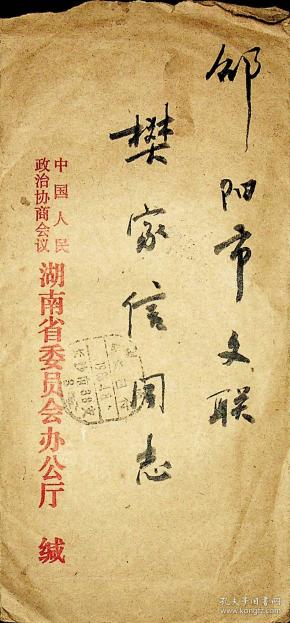 邵阳市文联
樊家信同志
中国人民
政治协商会议
湖南省委员会办公厅 缄
孔夫子旧书网